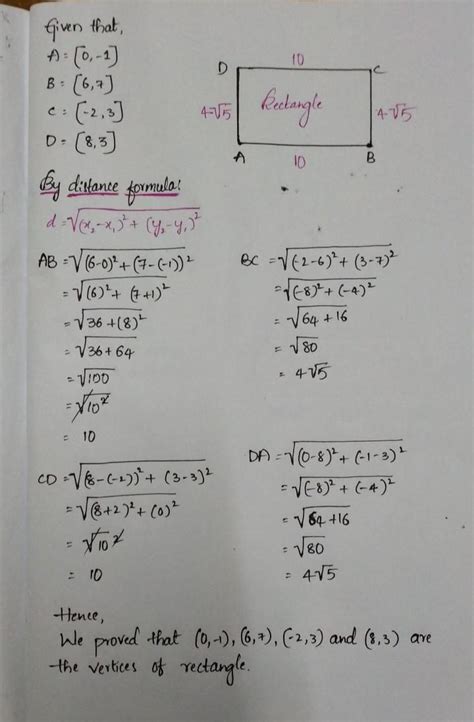 Given that,
A = [0,-1]
B = [6,7]
C = [-2,3]
D = [8,3]
10
D C
4√5 Rectangle 4√5
A B
10
By distance formula:
d = √(x₂-x₁)² + (y₂-y₁)²
AB = √(6-0)² + (7-(-1))²
= √(6)² + (7+1)²
= √36 + (8)²
= √36 + 64
= √100
= √10²
= 10
BC = √(-2-6)² + (3-7)²
= √(-8)² + (-4)²
= √64 + 16
= √80
= 4√5
CD = √(8-(-2))² + (3-3)²
= √(8+2)² + (0)²
= √10²
= 10
DA = √(0-8)² + (-1-3)²
= √(-8)² + (-4)²
= √64 + 16
= √80
= 4√5
Hence,
We proved that (0,-1), (6,7), (-2,3) and (8,3) are
the vertices of rectangle.